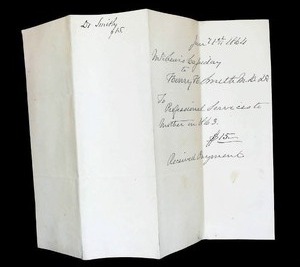 Dr Smith's
$15
Jan'y 1st 1864
to
Berry H. Smith M.D. Dr
To
Professional Services to
Mother in 1863.
$15—
Received Payment